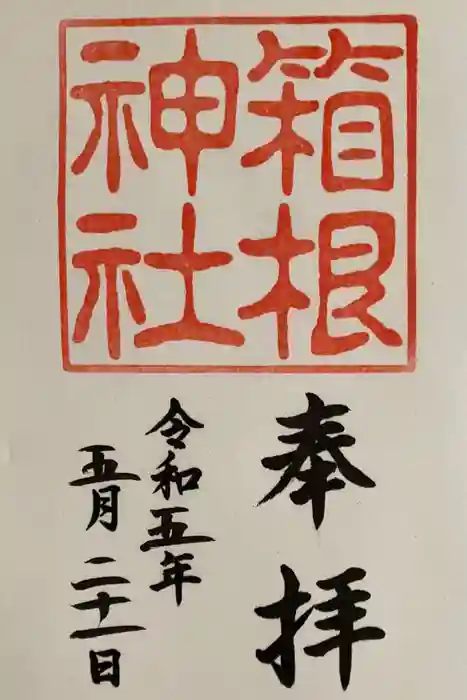 箱根
神社
奉拝
令和五年
五月二十一日